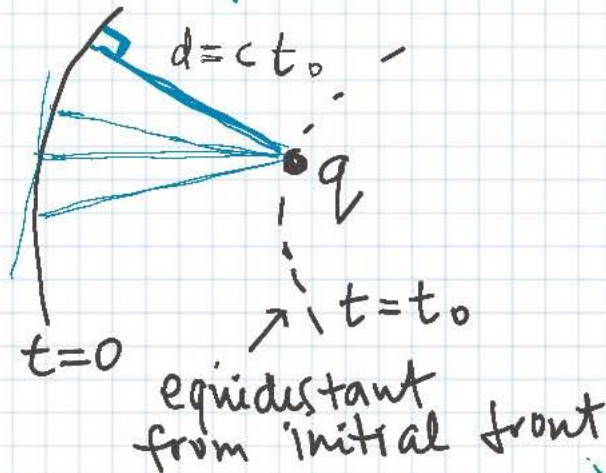 d = c t₀
q
t = t₀
t = 0
equidistant
from initial front